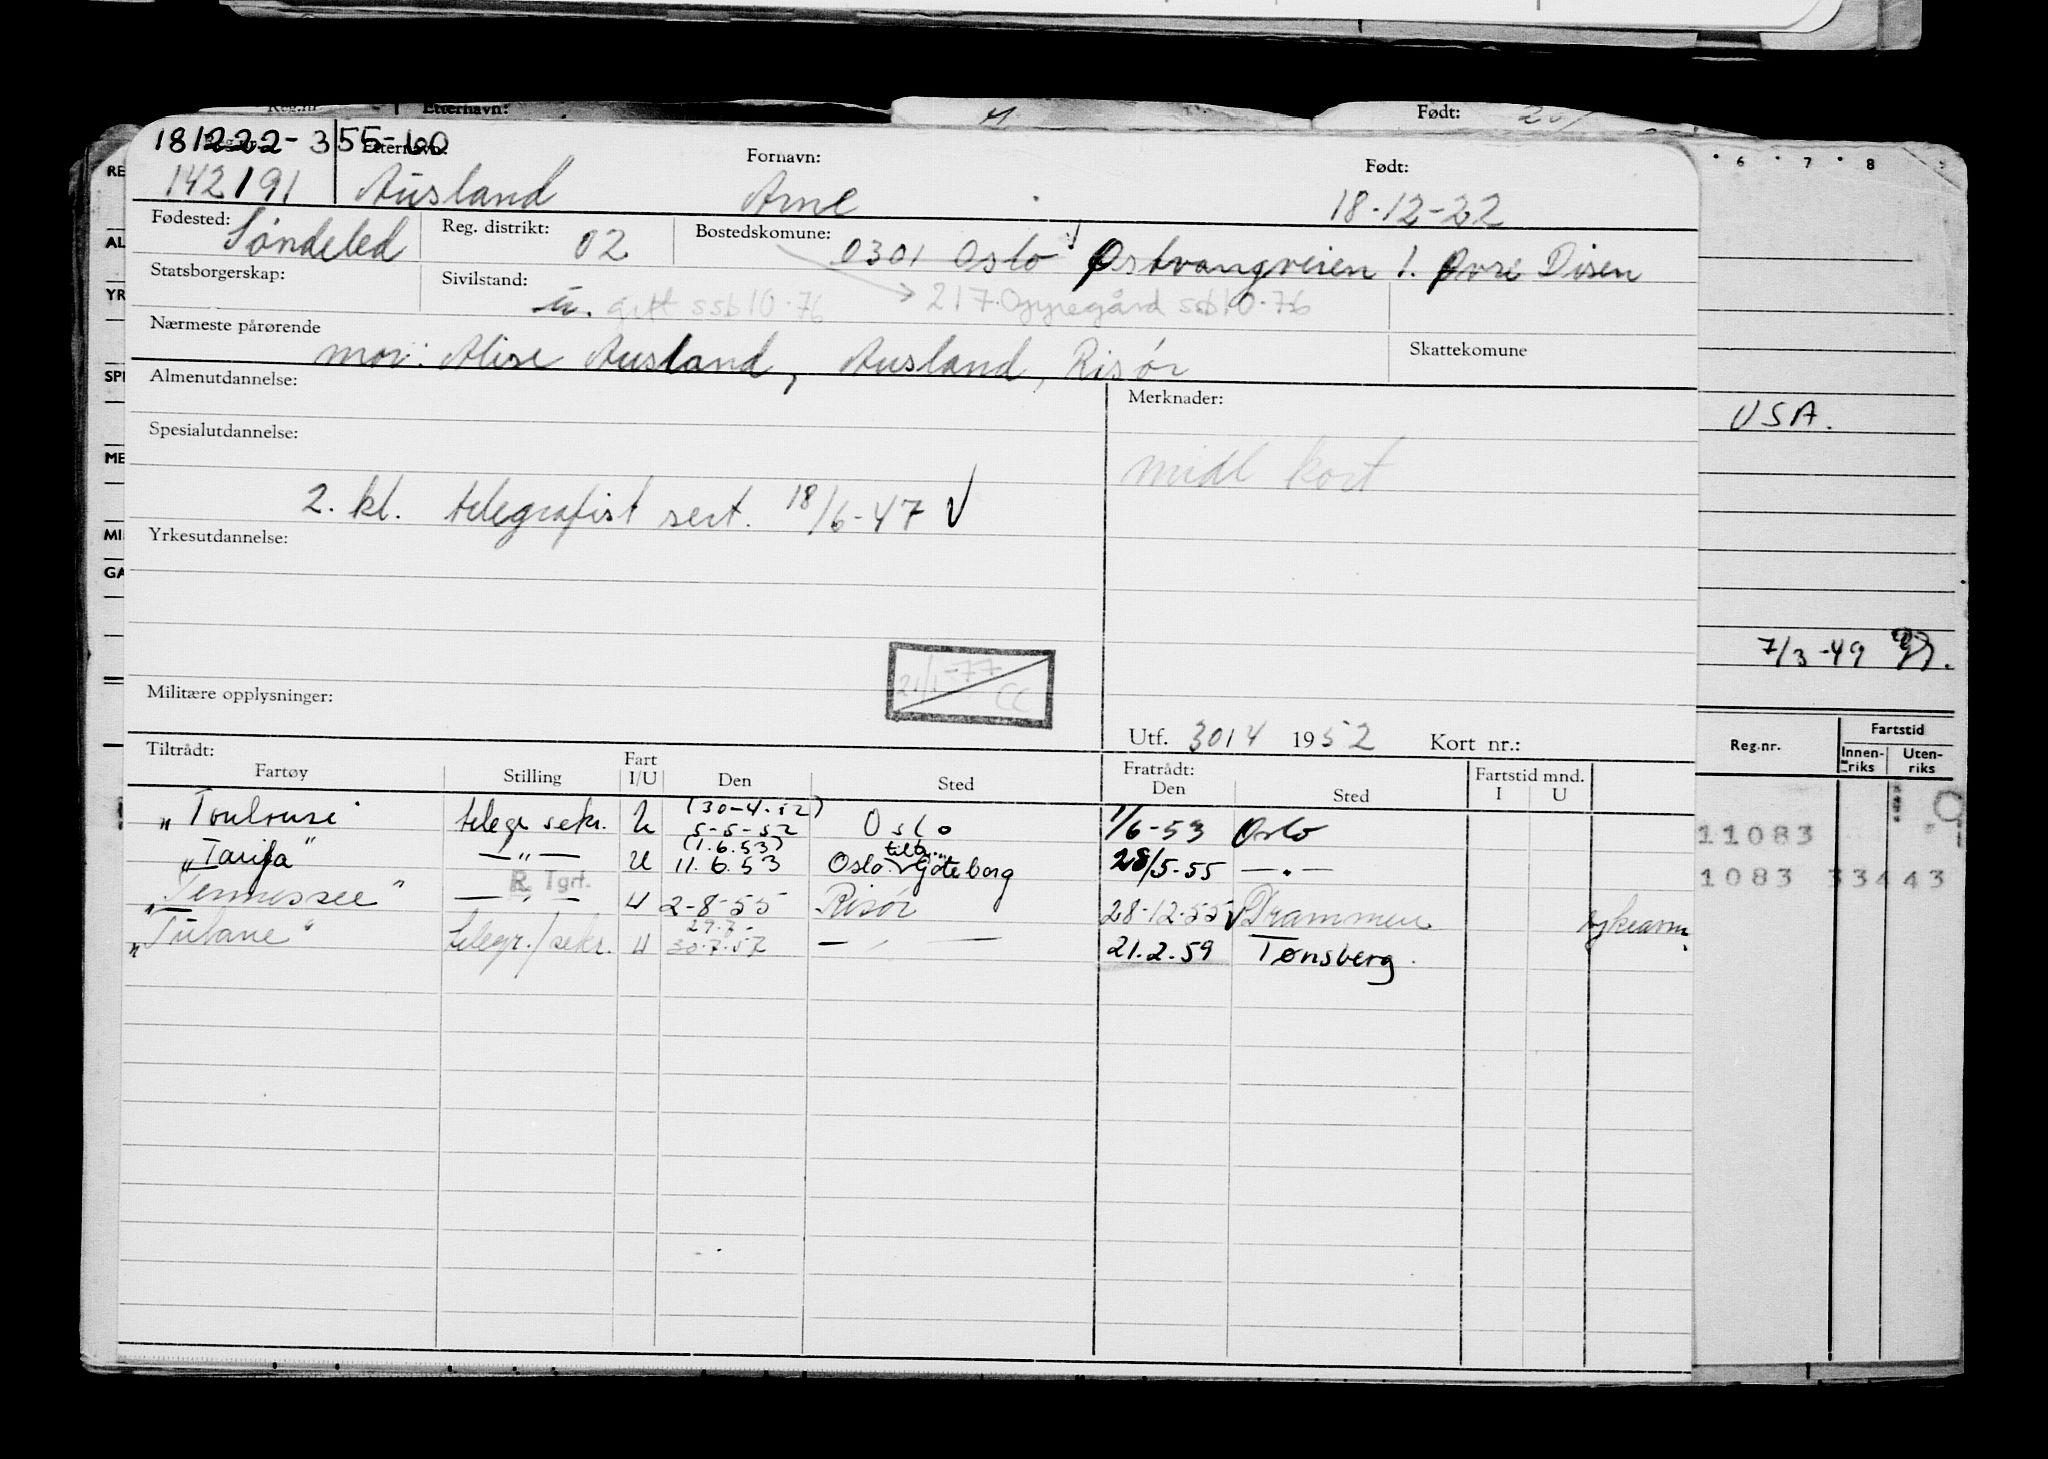 Reg.nr. Etternavn: Født:
181222-355-60
Etternavn: Fornavn: Født:
142191 Ausland Arne 18-12-22
Fødested: Søndeled Reg. distrikt: 02 Bostedskomune: 0301 Oslo Østvangveien 1. Øvre Disen
Statsborgerskap: Sivilstand: u. gift ssb 10.76 → 217 Oppegård ssb 10.76
Nærmeste pårørende
mor: Alise Ausland, Ausland, Risør Skattekomune
Almenutdannelse: Merknader:
Spesialutdannelse: midl kort
2. kl. telegrafist sert. 18/6-47 V
Yrkesutdannelse:
21/1-77 CC
Militære opplysninger:
Utf. 30/4 1952 Kort nr.:
Tiltrådt: Fratrådt:
Fartøy Stilling Fart I/U Den Sted Den Sted Fartstid mnd. I U
(30-4-52)
"Toulouse" telegr. sekr. U 5-5-52 Oslo 1/6-53 Oslo
(1.6.53)
"Tarifa" —"— U 11.6.53 Oslo Göteborg 28/5-55 —"—
R. Tgrf.
"Tennessee" —"— U 2-8-55 Risør 28-12-55 V Drammen
29.7.
"Tulane" telegr./sekr. U 30.7.57 —"— 21.2.59 Tønsberg.
6 7 8
RE
AL
YR
SPE
ME
MI
GA
USA.
7/3-49
Reg.nr. Fartstid
Innen-riks Uten-riks
11083
1083 33443